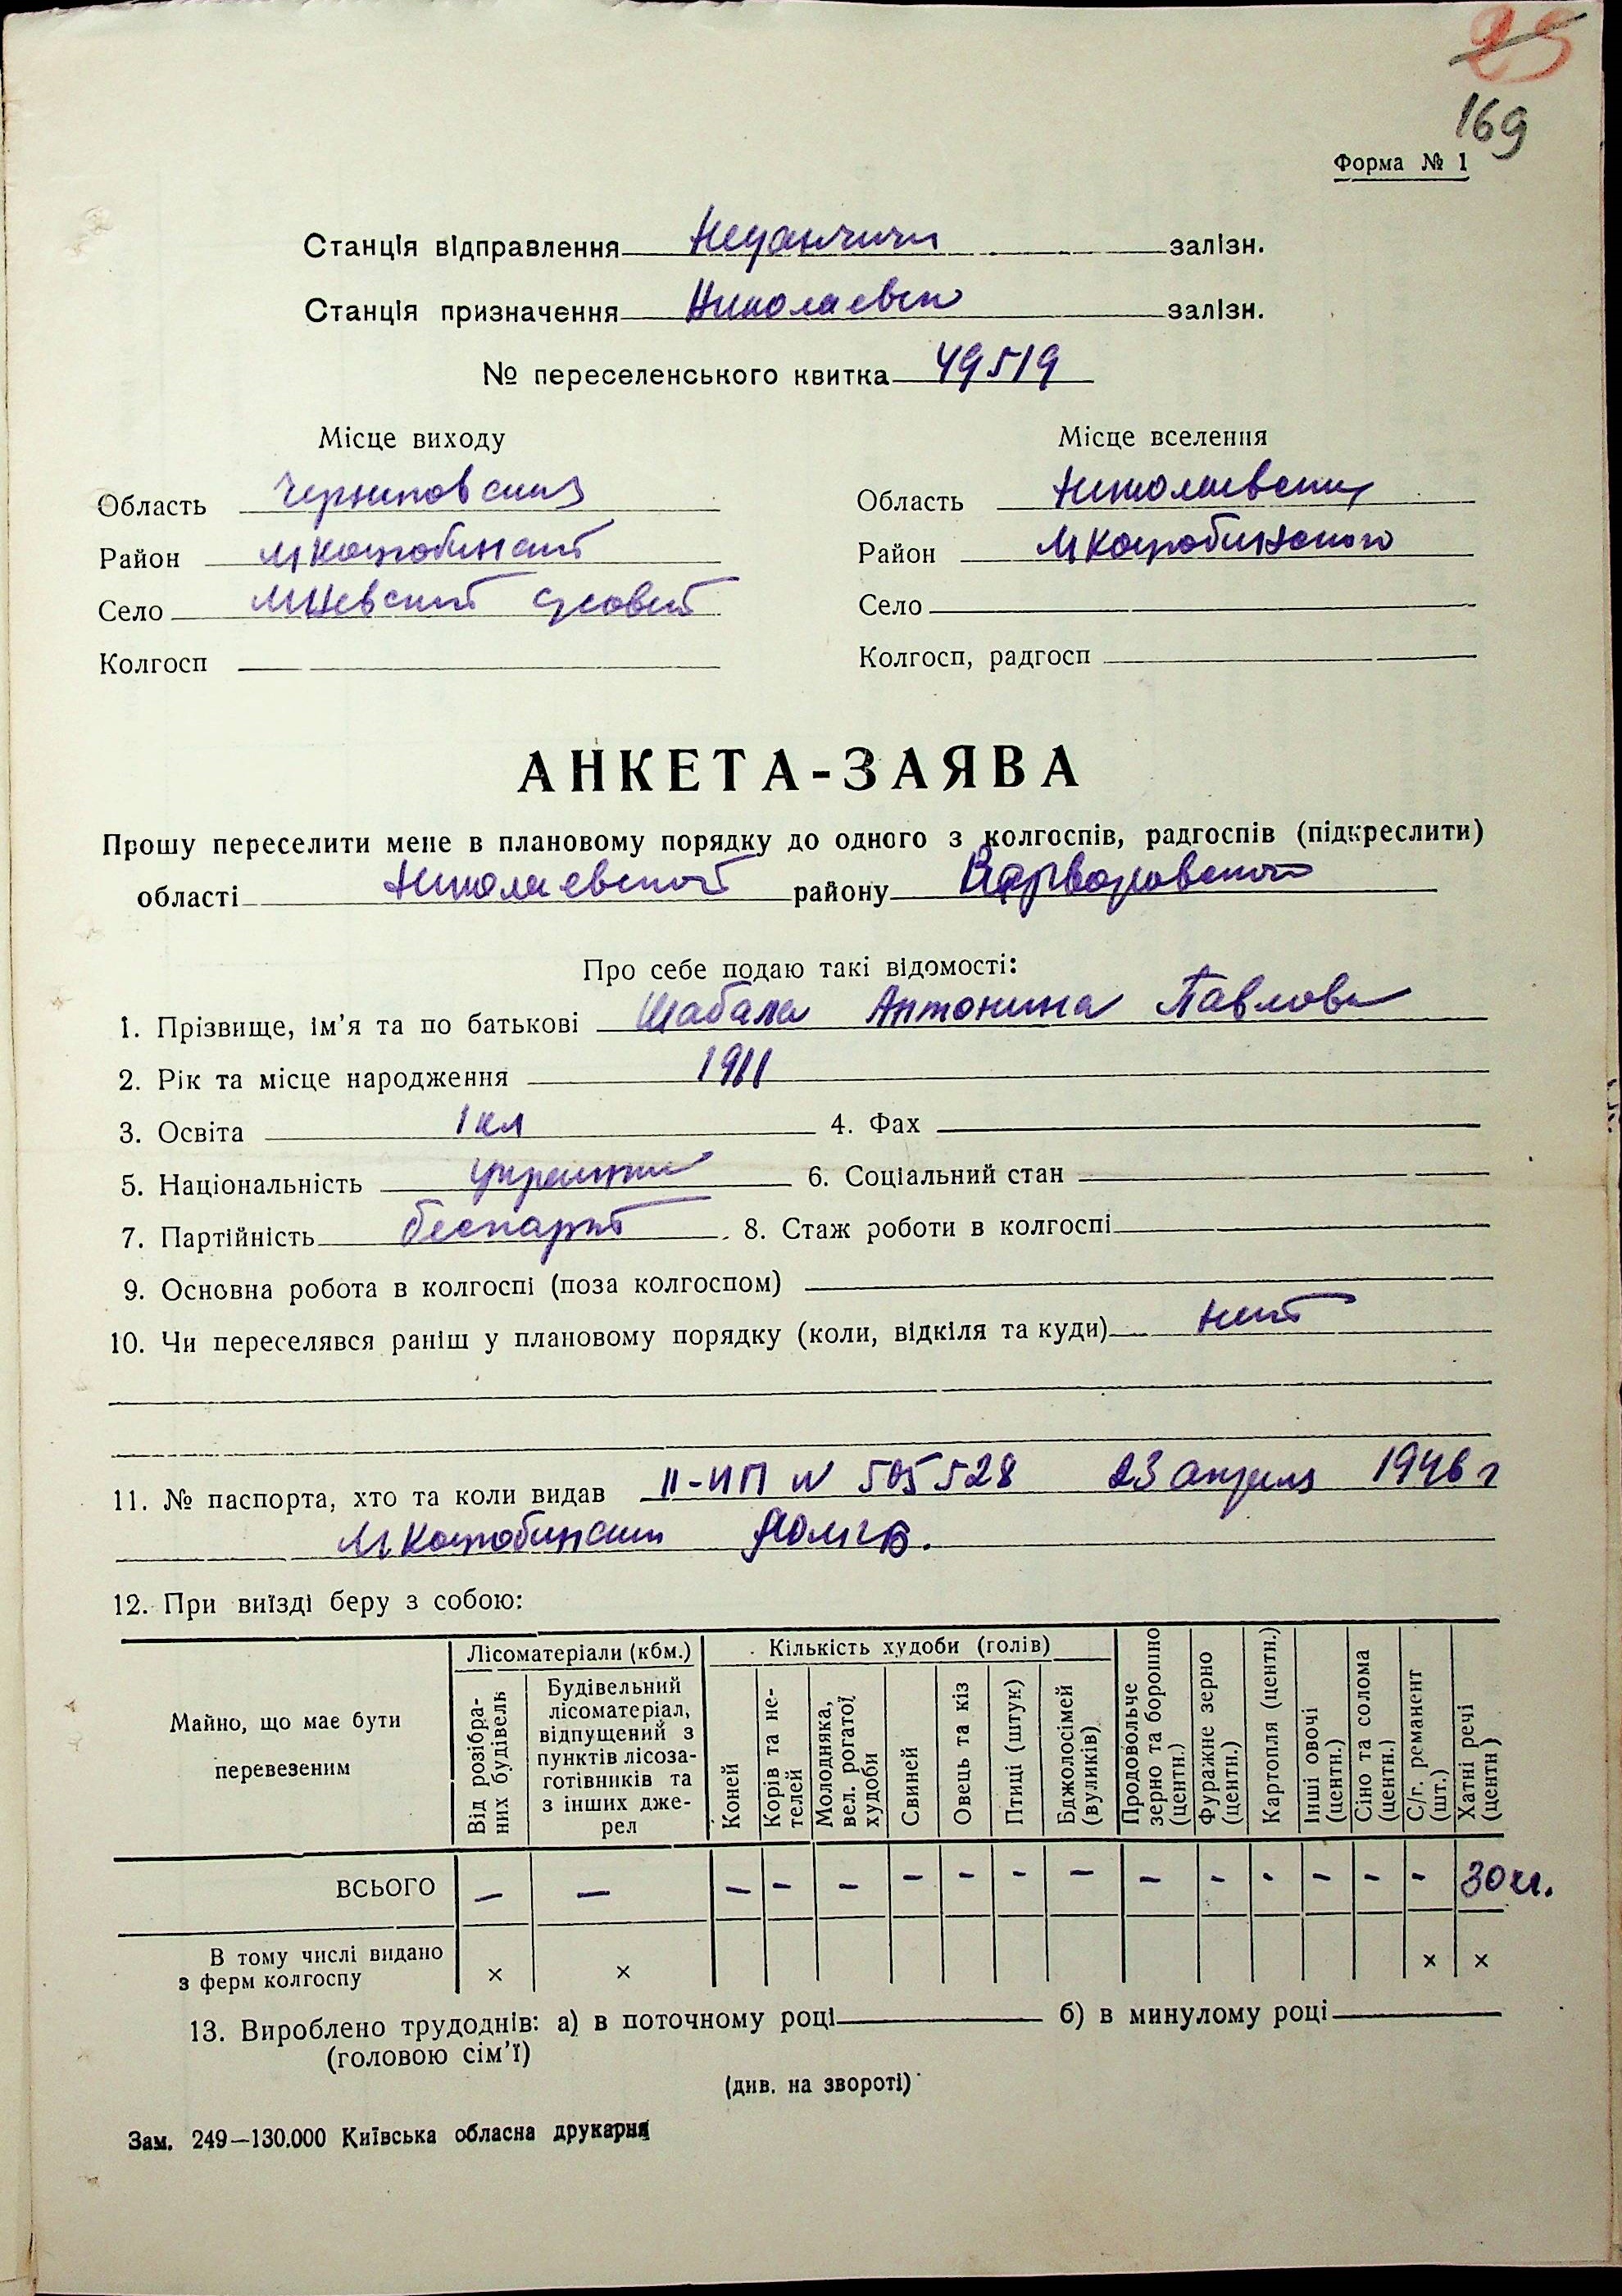 25
169
Форма № 1
Станція відправлення Неданчичи залізн.
Станція призначення Николаев залізн.
№ переселенського квитка 49519
Місце виходу Місце вселення
Область Черниговская Область Николаевская
Район М Коцюбинский Район М Коцюбинского
Село сусовет Село
Колгосп Колгосп, радгосп
АНКЕТА-ЗАЯВА
Прошу переселити мене в плановому порядку до одного з колгоспів, радгоспів (підкреслити)
області Николаевской району Варваровского
Про себе подаю такі відомості:
1. Прізвище, ім’я та по батькові Шабала Антонина Павлов
2. Рік та місце народження 1911
3. Освіта 1 кл 4. Фах
5. Національність украинка 6. Соціальний стан
7. Партійність беспарт 8. Стаж роботи в колгоспі
9. Основна робота в колгоспі (поза колгоспом)
10. Чи переселявся раніш у плановому порядку (коли, відкіля та куди) нет
11. № паспорта, хто та коли видав II-ИП N 505528 23 апреля 1946 г
М Коцюбинским
12. При виїзді беру з собою:
Майно, що має бути перевезеним
Лісоматеріали (кбм.)
Кількість худоби (голів)
Від розібраних будівель
Будівельний
лісоматеріал,
відпущений з
пунктів лісоза-
готівників та
з інших дже-
рел
Коней
Корів та не-
телей
Молодняка,
вел. рогатої
худоби
Свиней
Овець та кіз
Птиці (штук)
Бджолосімей
(вуликів)
Продовольче
зерно та борошно
(центн.)
Фуражне зерно
(центн.)
Картопля (центн.)
Інші овочі
(центн.)
Сіно та солома
(центн.)
С/г. реманент
(шт.)
Хатні речі
(центн)
ВСЬОГО — — — — — — — — — — — - — - - 30 кг.
В тому числі видано
з ферм колгоспу × × × ×
13. Вироблено трудоднів: а) в поточному році б) в минулому році
(головою сім’ї)
(див. на звороті)
Зам. 249—130.000 Київська обласна друкарня